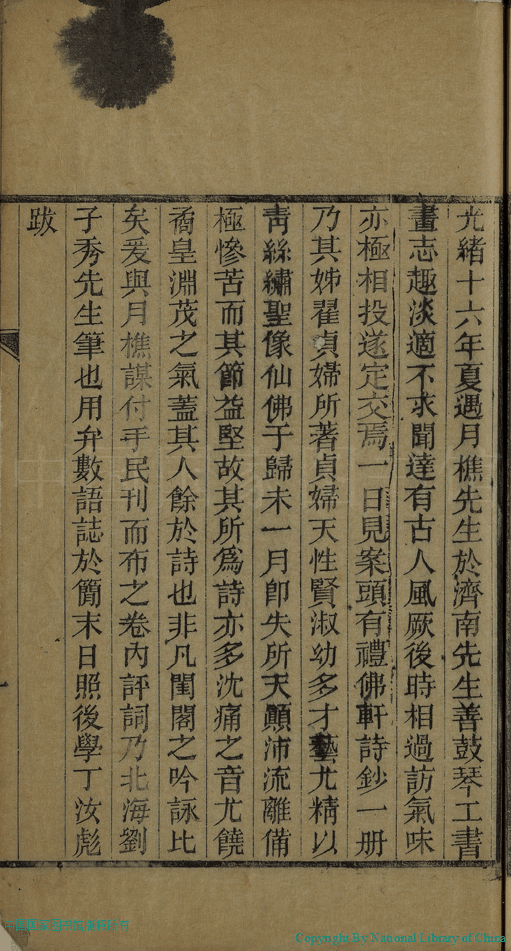 光緒十六年夏遇月樵先生於濟南先生善鼓琴工書
畫志趣淡適不求聞達有古人風厥後時相過訪氣味
亦極相投遂定交焉一日見案頭有禮佛軒詩鈔一册
乃其姊翟貞婦所著貞婦天性賢淑幼多才藝尤精以
靑絲繡聖像仙佛于歸未一月卽失所天顚沛流離備
極慘苦而其節益堅故其所爲詩亦多沈痛之音尤饒
矞皇淵茂之氣蓋其人餘於詩也非凡閨閣之吟詠比
矣爰與月樵謀付手民刊而布之卷內評詞乃北海劉
子秀先生筆也用弁數語誌於簡末日照後學丁汝彪
跋
Copyright By National Library of China